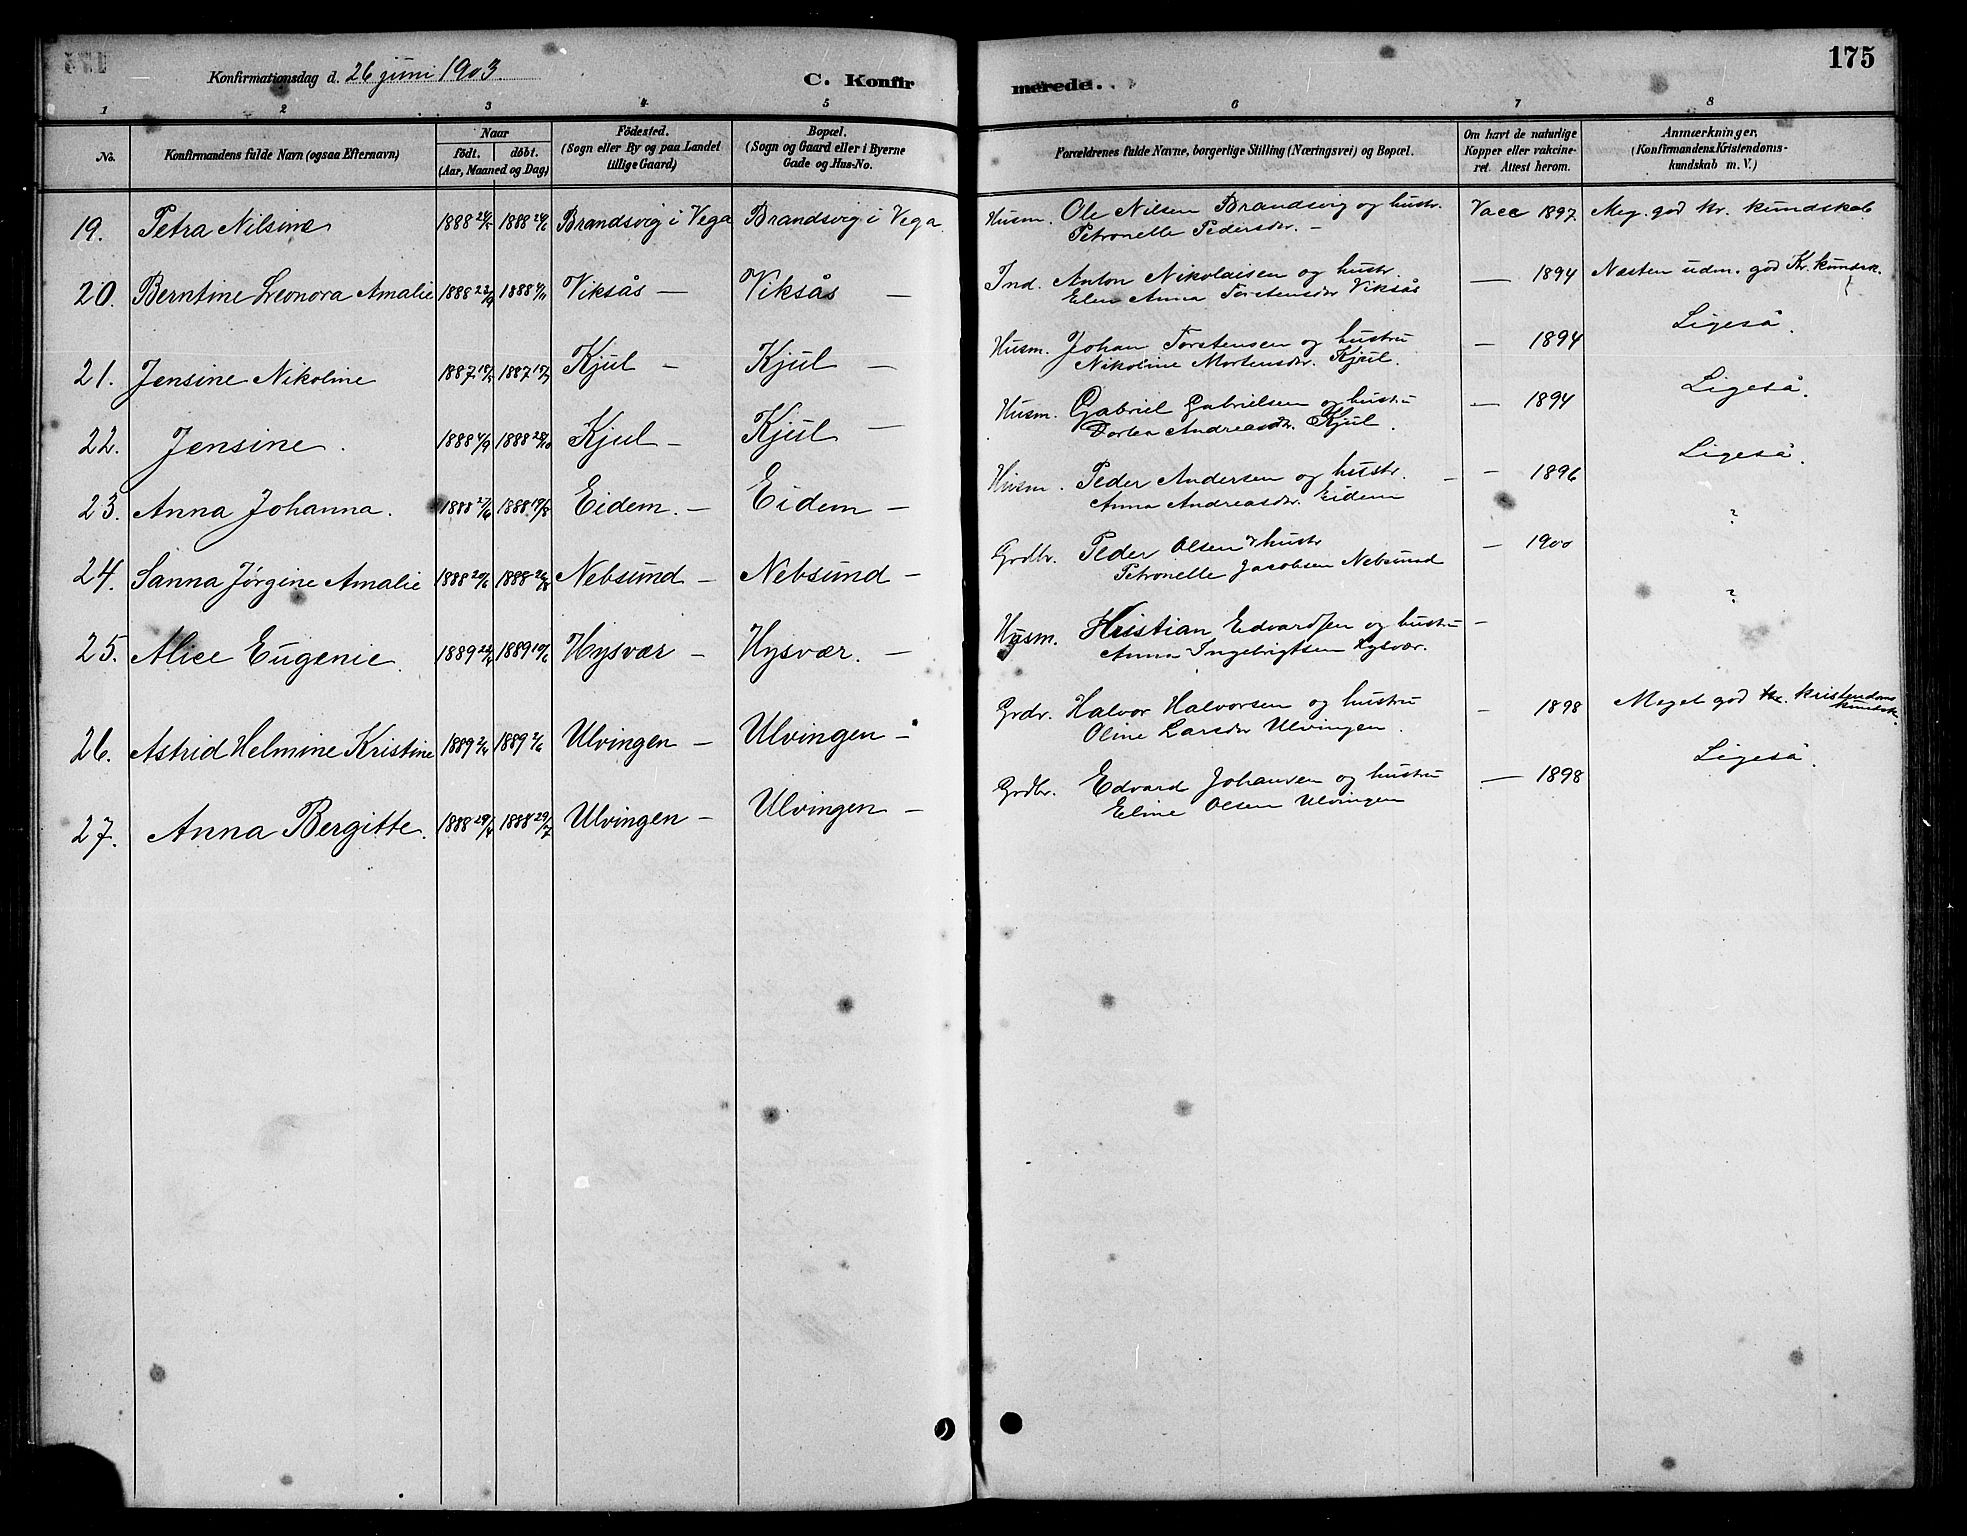 Konfirmationsdag d. 26 juni 1903.
C. Konfir
merede.
175
1 2 3 4 5 6 7 8
No.
Konfirmandens fulde Navn (ogsaa Efternavn)
Naar
født. døbt.
(Aar, Maaned og Dag)
Fødested.
(Sogn eller By og paa Landet
tillige Gaard)
Bopæl.
(Sogn og Gaard eller i Byerne
Gade og Hus-No.
Forældrenes fulde Navne, borgerlige Stilling (Næringsvei) og Bopæl.
Om havt de naturlige
Kopper eller vakcine-
ret. Attest herom.
Anmærkninger,
(Konfirmandens Kristendoms-
kundskab m. V.)
19. Petra Nilsine 1888 1888 Brandsvig i Vega Brandsvig i Vega Husm. Ole Nilsen Brandsvig og hustr. Vacc 1897. Meg. god kr. kundskab
Petronelle Pedersdr. –
20. Berntine Leonora Amalie 1888 1888 Viksås – Viksås – Ind. Anton Nikolaisen og hustr. — 1894 Næsten udm. god Kr. kundsk.
Elen Anna Torstensdr Viksås
21. Jensine Nikoline 1887 1887 Kjul – Kjul – Husm. Johan Torstensen og hustru – 1894 Ligeså.
Nikoline Mortensdr. Kjul.
22. Jensine. 1888 1888 Kjul – Kjul – Husm. Gabriel Gabrielsen og hustru — 1894 Ligeså.
Dortea Andreasdr. Kjul.
23. Anna Johanna. 1888 27/6 1888 19/8 Eidem. – Eidem – Husm. Peder Andersen og hustr. – – 1896 Ligeså.
Anna Andreasdr. Eidem
24. Sanna Jørgine Amalie 1888 1888 26/8 Nebsund – Nebsund – Grdbr. Peder Olsen & hustr – 1900 ?
Petronelle Jacobsen Nebsund
25. Alice Eugenie. 1889 1889 10/6 Hysvær – Hysvær. – Husm. Kristian Edvardsen og hustru – ?
Anna Ingebrigtsen Hysvær.
26. Astrid Helmine Kristine 1889 2/4 1889 2/6 Ulvingen – Ulvingen – Grdr. Halvor Halvorsen og hustru – 1898 Meget god kristendoms
kundsk.
Oline Larsdr Ulvingen.
27. Anna Bergitte. 1888 29/4 1888 29/7 Ulvingen – Ulvingen – Grdbr. Edvard Johansen og hustru — 1898 Ligeså.
Eline Olsen Ulvingen